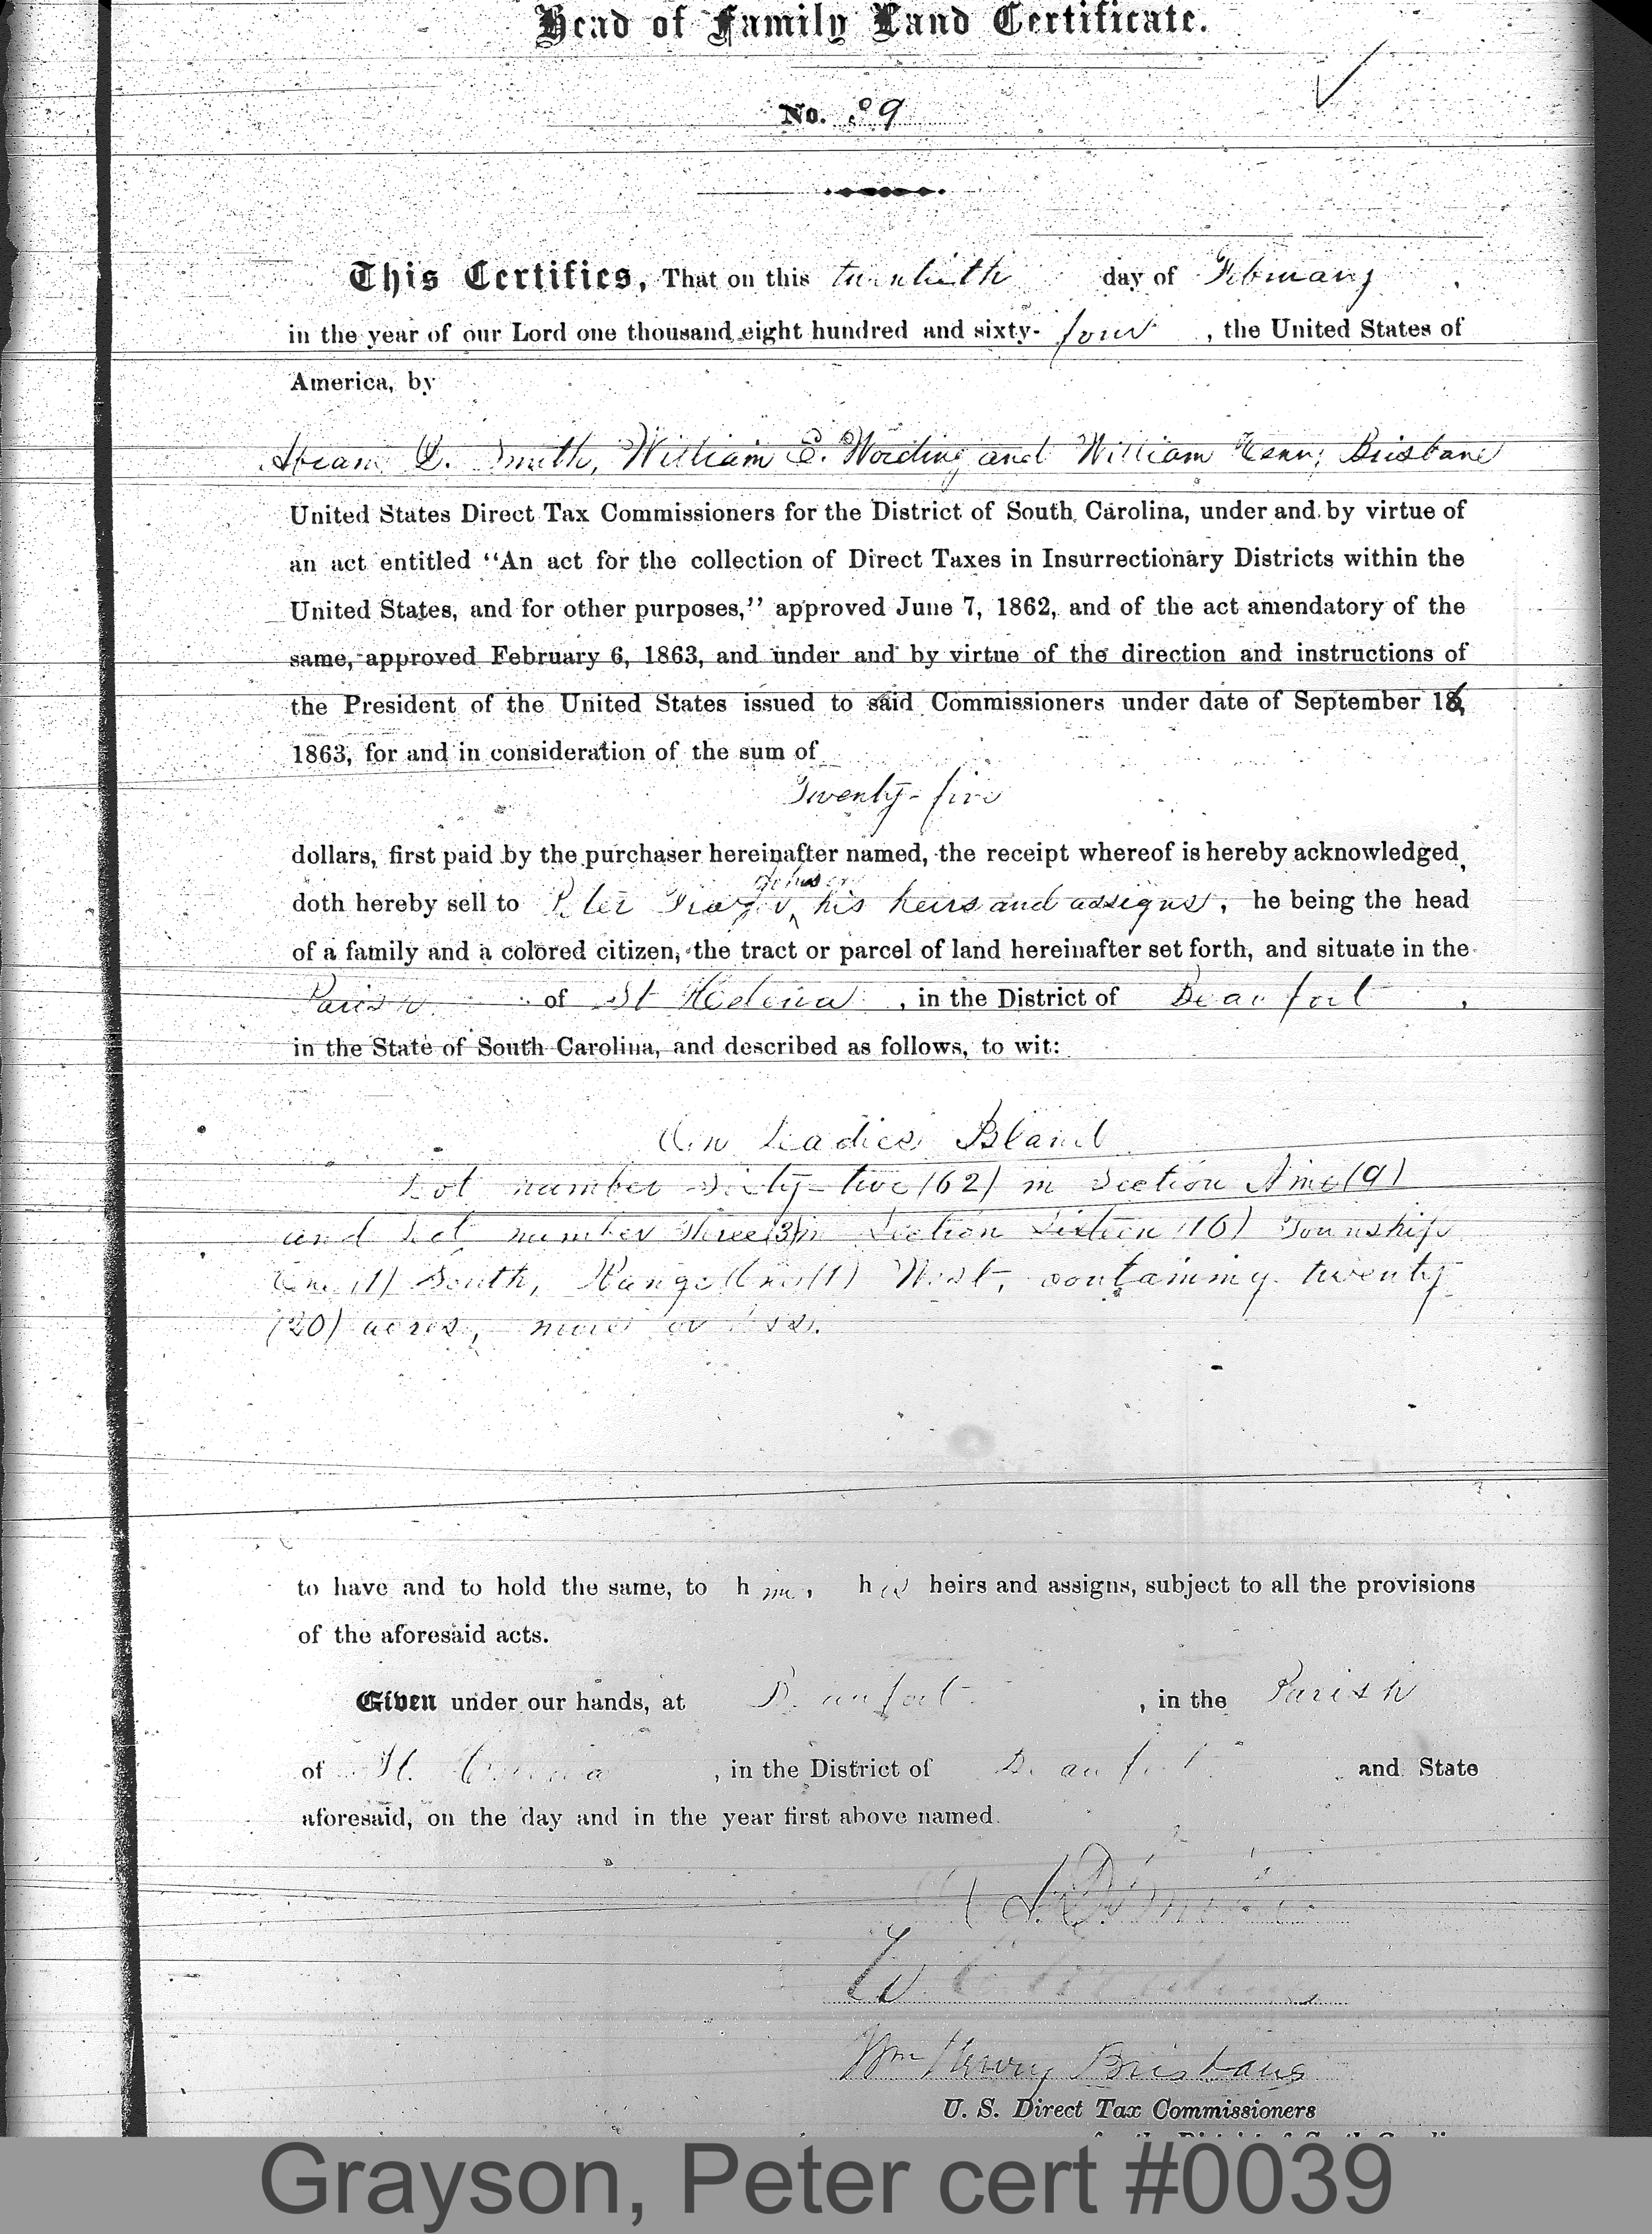 Head of Family Land Certificate.
No. 39
This Certifies, That on this twentieth day of February
in the year of our Lord one thousand eight hundred and sixty- four , the United States of
America, by
Abram D. Smith, William E. Wording and William Henry Brisbane
United States Direct Tax Commissioners for the District of South Carolina, under and by virtue of
an act entitled "An act for the collection of Direct Taxes in Insurrectionary Districts within the
United States, and for other purposes," approved June 7, 1862, and of the act amendatory of the
same, approved February 6, 1863, and under and by virtue of the direction and instructions of
the President of the United States issued to said Commissioners under date of September 16,
1863, for and in consideration of the sum of
Twenty-five
dollars, first paid by the purchaser hereinafter named, the receipt whereof is hereby acknowledged,
doth hereby sell to Peter his heirs and assigns, he being the head
of a family and a colored citizen, the tract or parcel of land hereinafter set forth, and situate in the
Parish of St Helena , in the District of Beaufort ,
in the State of South Carolina, and described as follows, to wit:
On Ladies Island
Lot number Sixty-two (62) in Section Nine (9)
and Lot number Three (3) in Section Sixteen (16) Township
One (1) South, Range One (1) West, containing twenty
(20) acres, more or less.
to have and to hold the same, to him, his heirs and assigns, subject to all the provisions
of the aforesaid acts.
Given under our hands, at Beaufort , in the Parish
of St. Helena , in the District of Beaufort and State
aforesaid, on the day and in the year first above named.
A. D. Smith
W. E. Wording
Wm Henry Brisbane
U. S. Direct Tax Commissioners
for the District of South Carolina
Grayson, Peter cert #0039